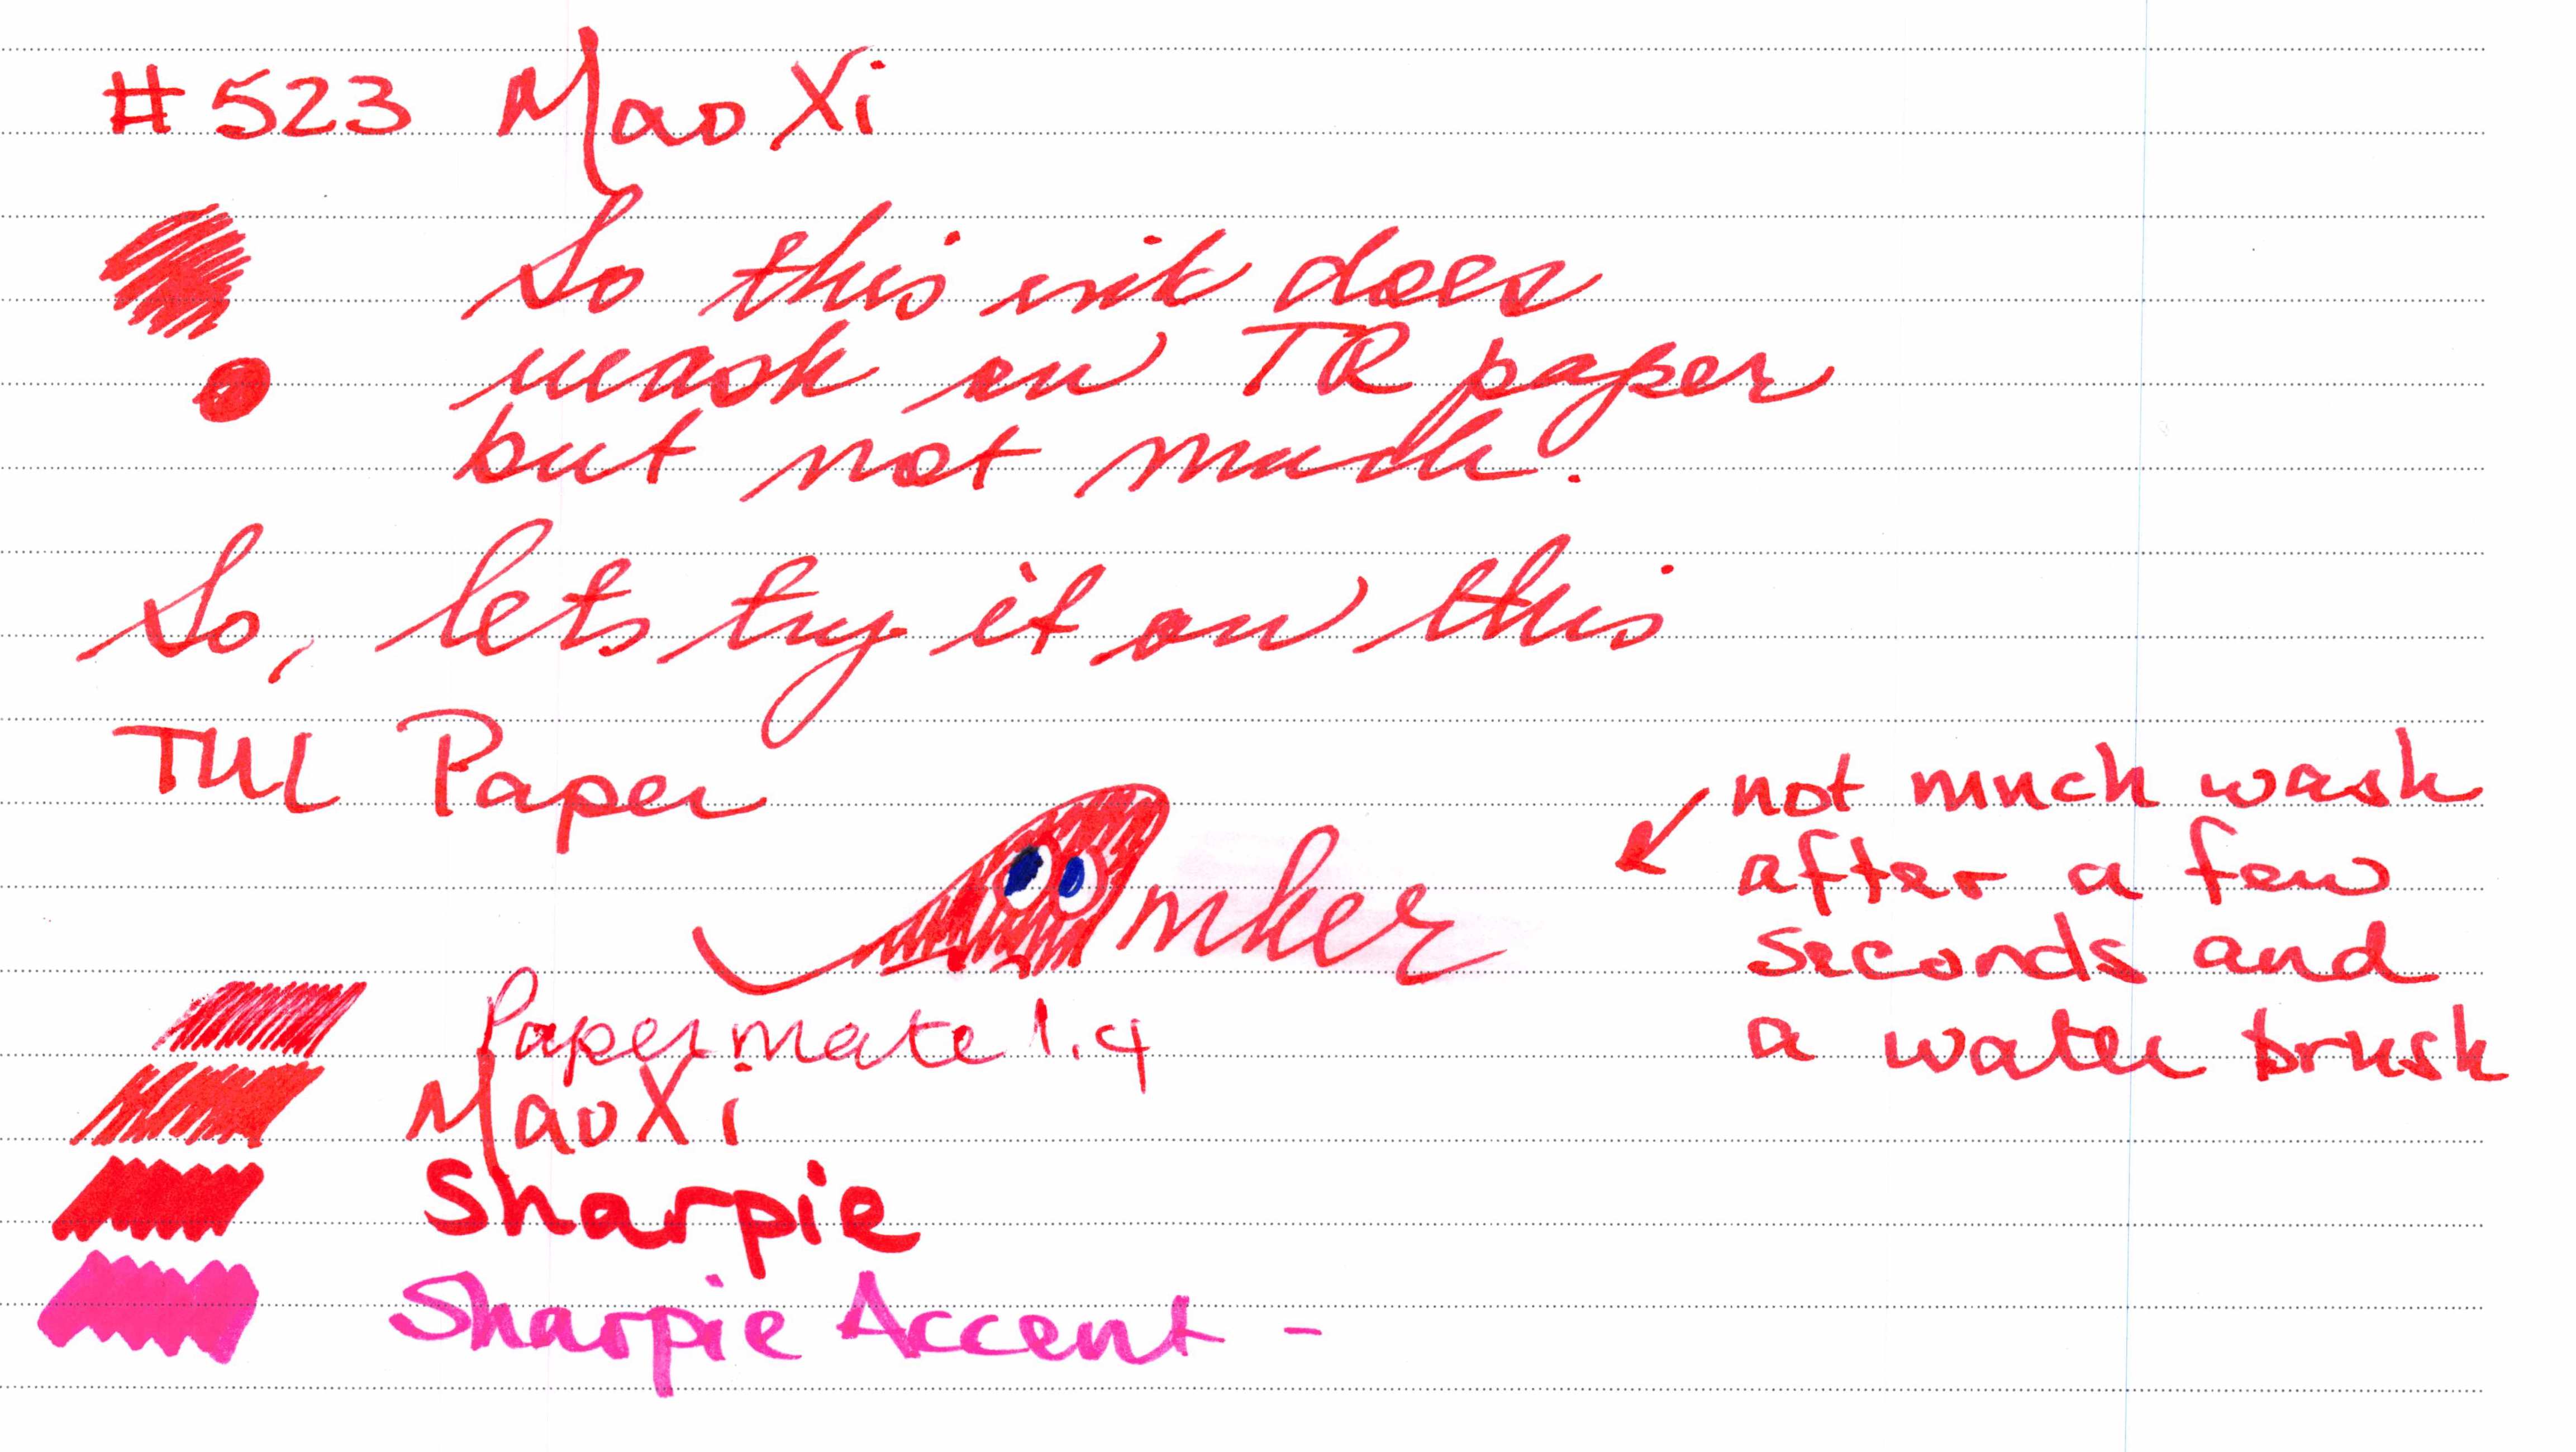 #523 Mao Xi
So this ink does
wash on TR paper
but not much.
So, lets try it on this
TUL Paper
not much wash
after a few
seconds and
a water brush
Amker
Papermate 1.4
MaoXi
Sharpie
Sharpie Accent -